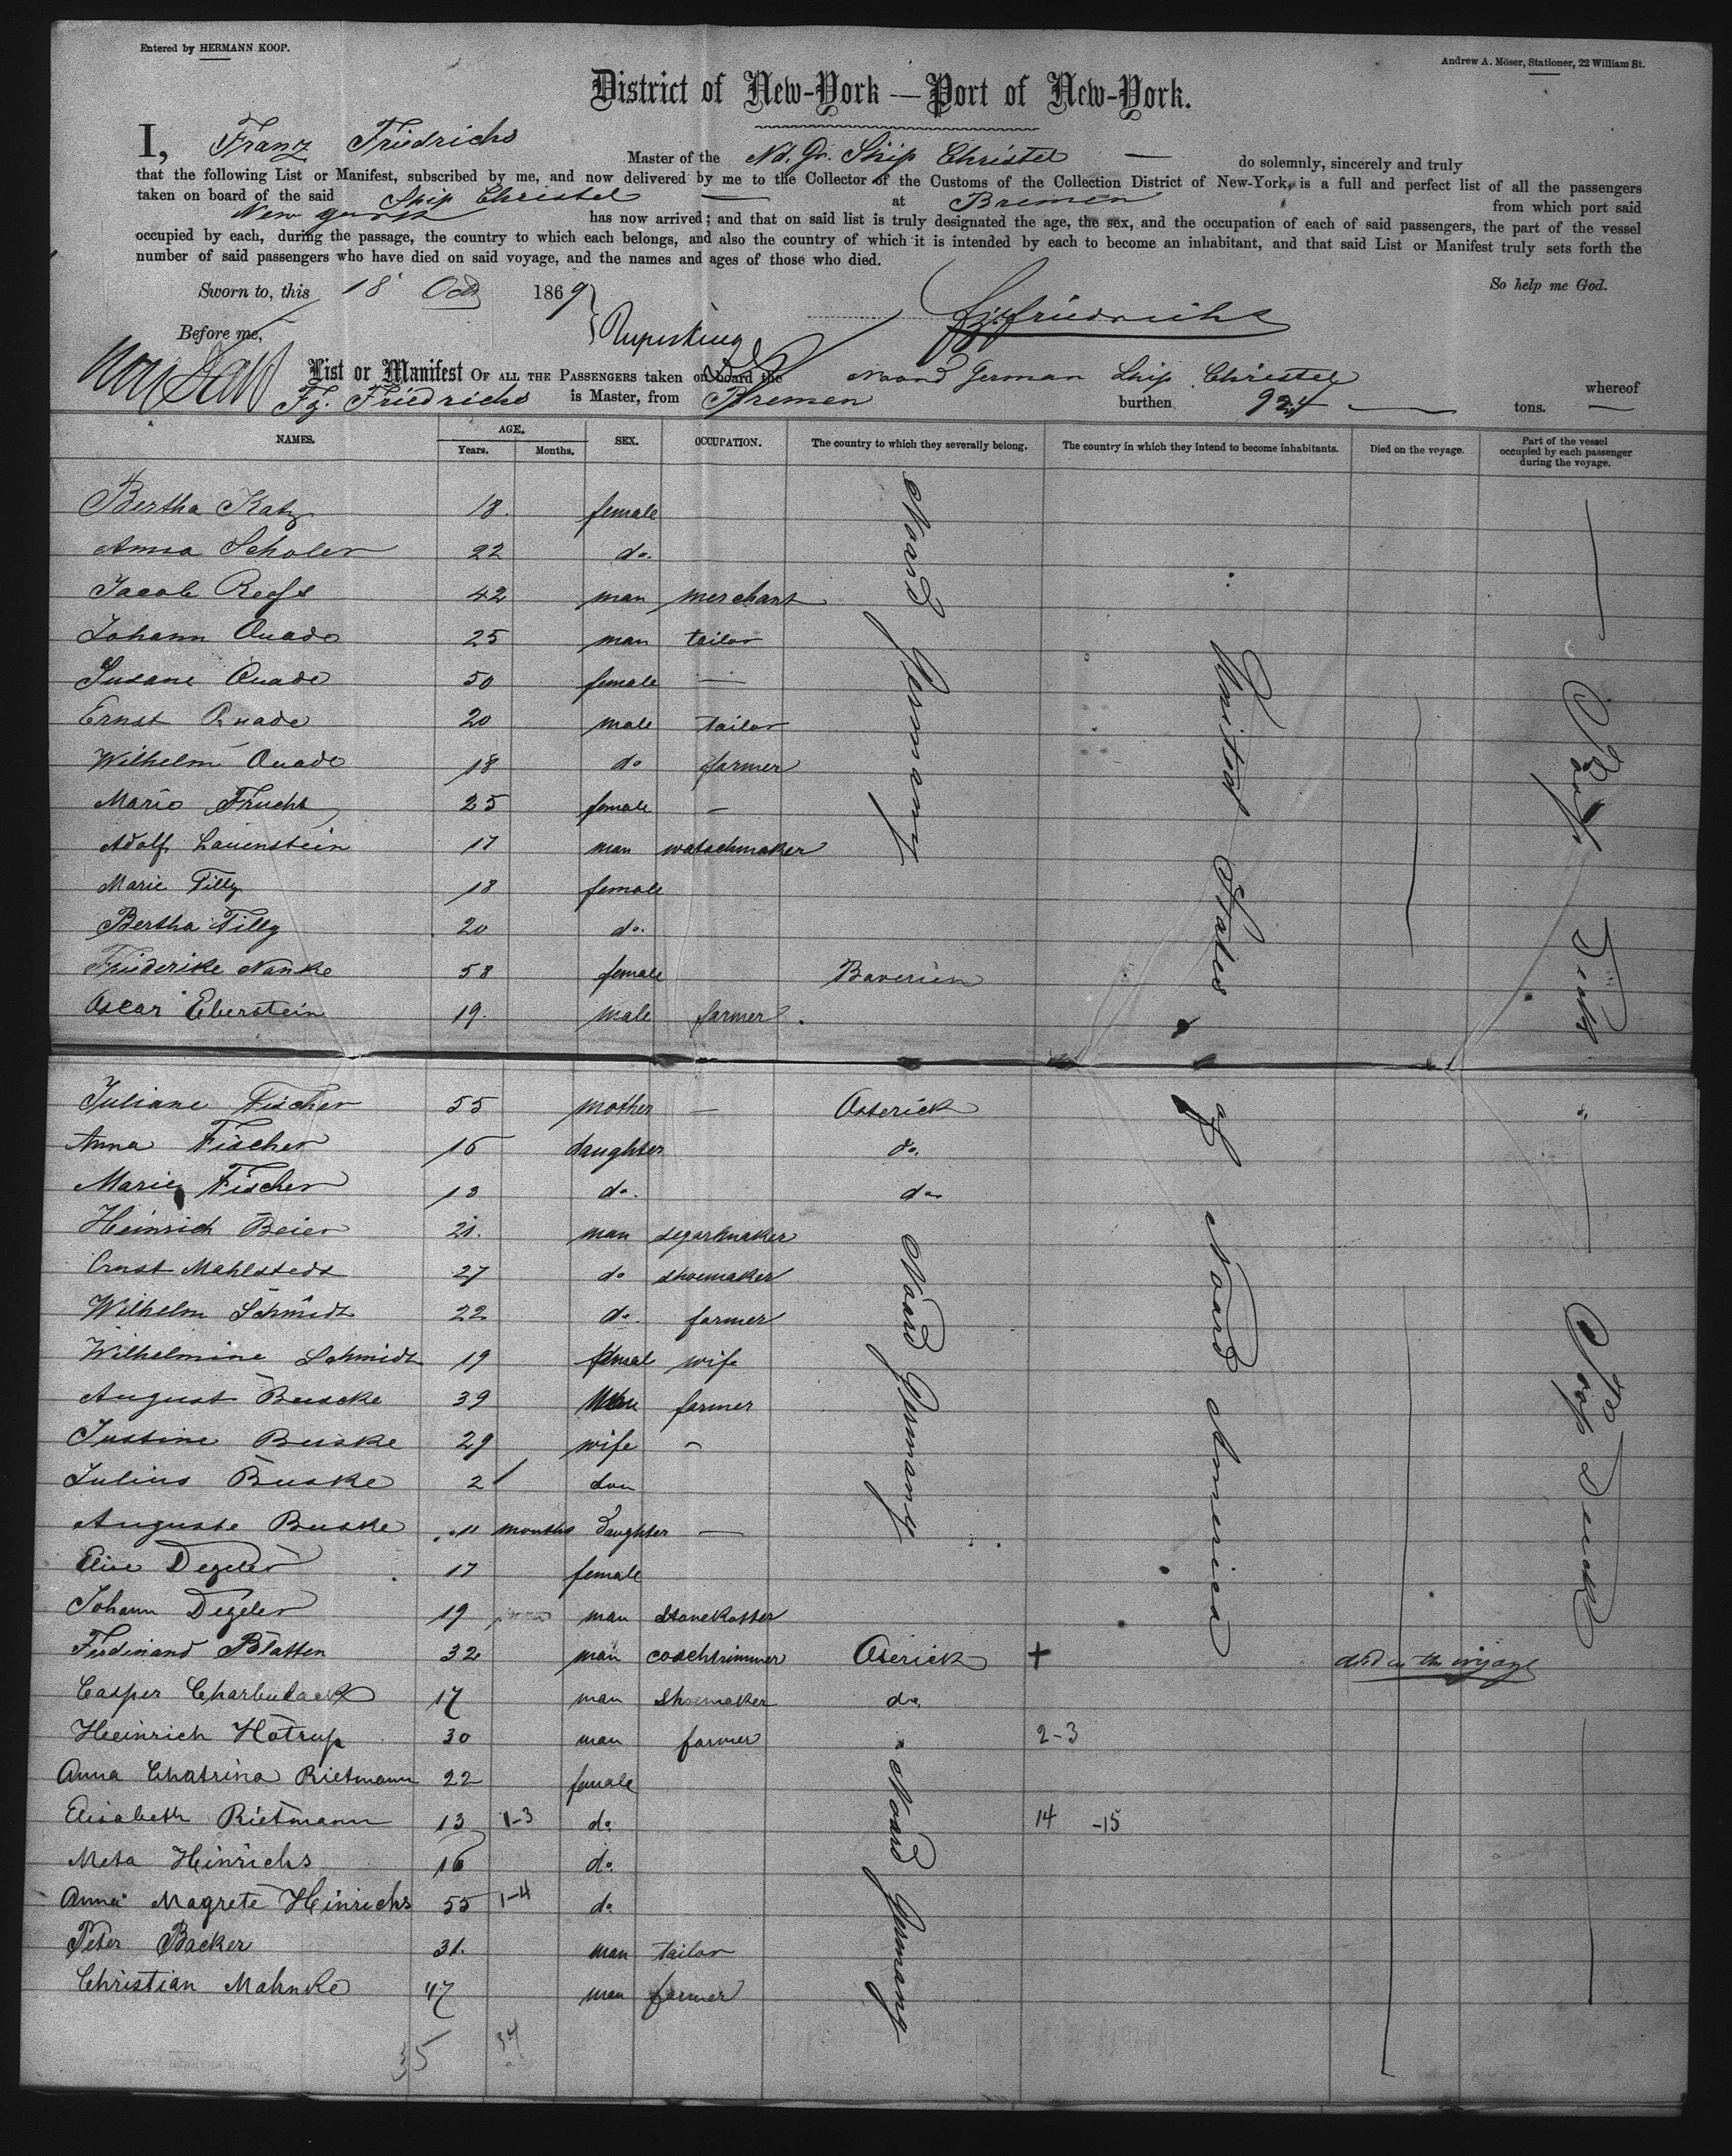 Entered by HERMANN KOOP.
Andrew A. Möser, Stationer, 22 William St.
District of New-York — Port of New-York.
I, Franz Friedrichs Master of the Nd. Gr. Ship Christel — do solemnly, sincerely and truly
that the following List or Manifest, subscribed by me, and now delivered by me to the Collector of the Customs of the Collection District of New-York, is a full and perfect list of all the passengers
taken on board of the said Ship Christel — at Bremen from which port said
New York has now arrived; and that on said list is truly designated the age, the sex, and the occupation of each of said passengers, the part of the vessel
occupied by each, during the passage, the country to which each belongs, and also the country of which it is intended by each to become an inhabitant, and that said List or Manifest truly sets forth the
number of said passengers who have died on said voyage, and the names and ages of those who died.
Sworn to, this 18 Octb 1869 So help me God.
Before me,
Fz. Friedrichs
List or Manifest OF ALL THE PASSENGERS taken on board the Noord German Ship Christel whereof
Fz. Friedrichs is Master, from Bremen burthen 924 — tons. —
NAMES. AGE. Years. Months. SEX. OCCUPATION. The country to which they severally belong. The country in which they intend to become inhabitants. Died on the voyage. Part of the vessel occupied by each passenger during the voyage.
Noord Germany
United States of Noord America
Bertha Katz 18. female
Anna Scholer 22 do.
Jacob 42 man merchant
Johann Quade 25 man tailor
Susane Quade 50 female —
Ernst Quade 20 male tailor
Wilhelm Quade 18 do farmer
Marie Frucht 25 female —
Adolf Lauenstein 17 man watschmaker
Marie Tilly 18 female
Bertha Tilly 20 do.
Friederike Nanke 58 female Baverien
Oscar Eberstein 19. male farmer
Juliane Fischer 55 mother — Osterick
Anna Fischer 16 daughter do.
Marie Fischer 13 do. do
Noord Germany
Heinrich Beier 21. man segarhmaker
Ernst Mahlstedt 27 do shoemaker
Wilhelm Schmidt 22 do. farmer
Wilhelmine Schmidt 19 femal wife
August Buscke 39 Man farmer
Justine Buske 29 wife —
Julius Buske 2 son
Auguste Buske 11 months daughter —
Elise Degeler 17 female
Johann Degeler 19 man stonekotter
Ferdinand Blatten 32 man coschtrimmer Oserick + died on the voyage
Casper 17 man shoemaker do.
Noord Germany
Heinrich Hotrup 30 man farmer 2-3
Anna Chatrina Rietmann 22 female
Elisabeth Rietmann 13 1-3 do. 14 -15
Meta Heinrichs 16 do.
Anna Magrete Heinrichs 55 1-4 do.
Peter Backer 31. man tailor
Christian Mahnke 47 man farmer
35 34